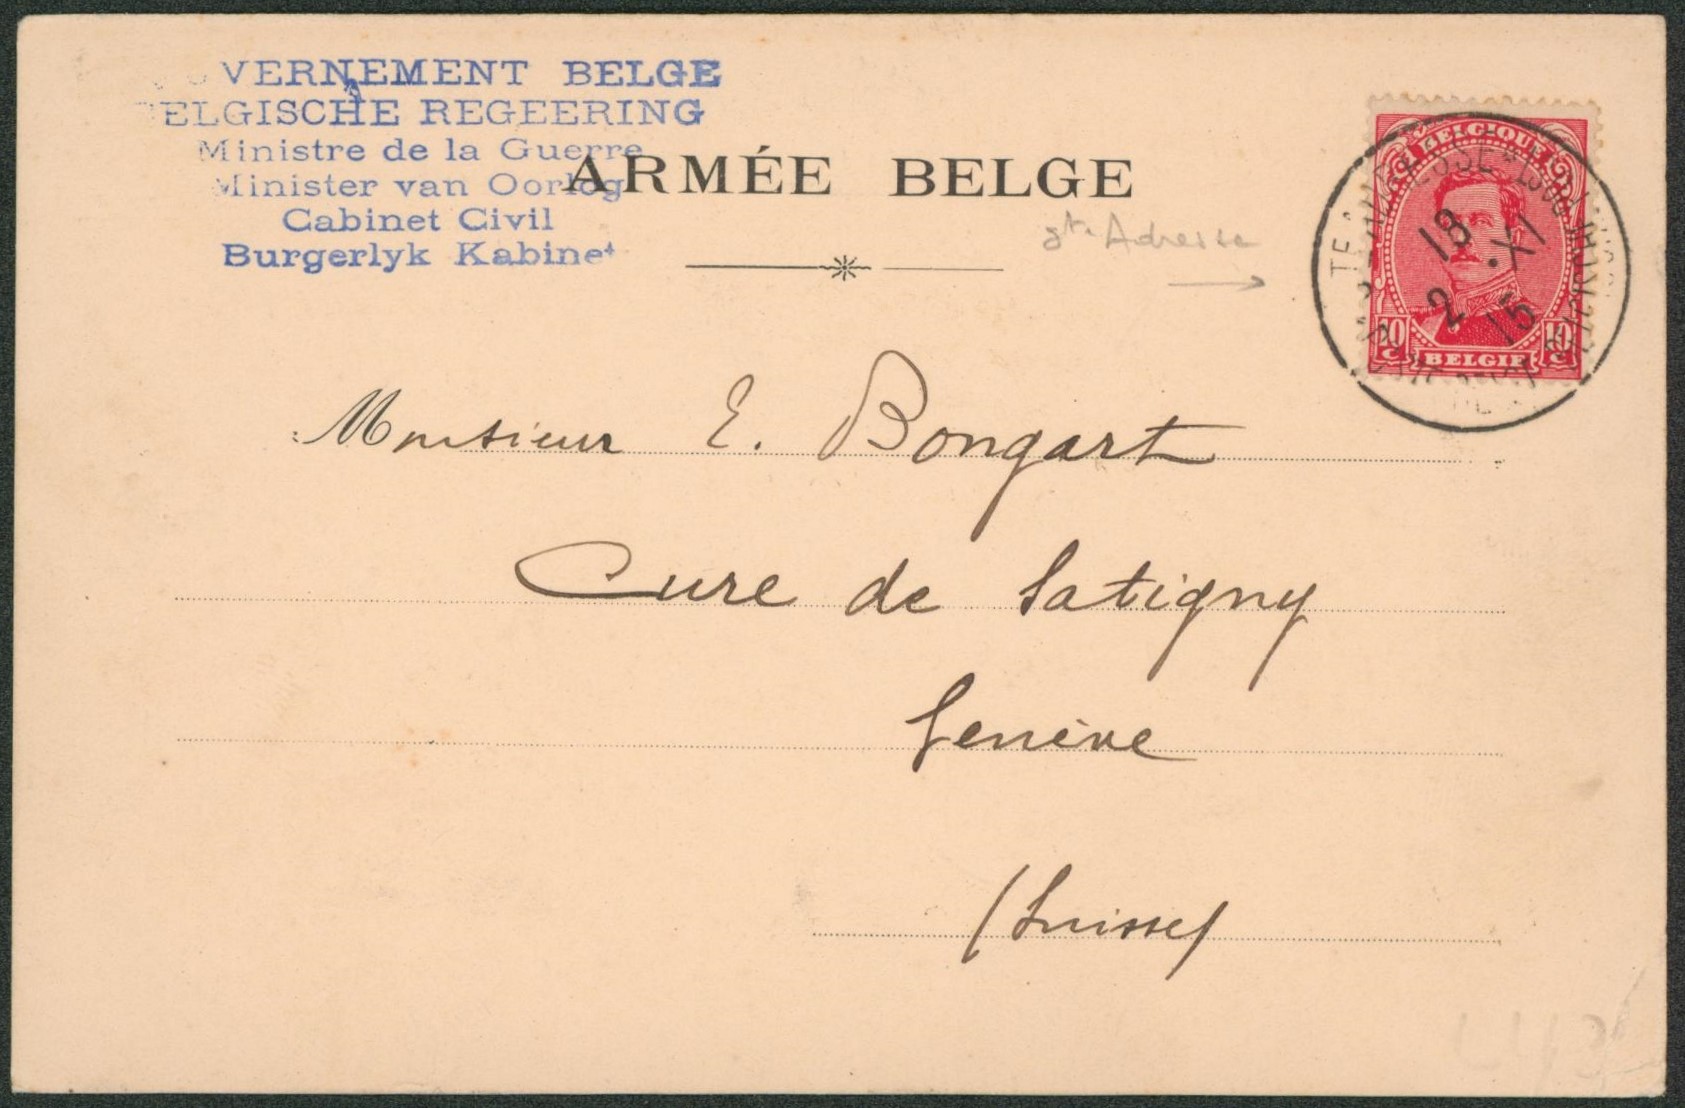 VERNEMENT BELGE
ELGISCHE REGEERING
Ministre de la Guerre
Minister van Oorlog
Cabinet Civil
Burgerlyk Kabinet
ARMÉE BELGE
Adresse
BELGIQUE
18 XI
2 15
10 c 10 c
BELGIE
Monsieur E. Bongart
Cure de Satigny
Genève
(Suisse)